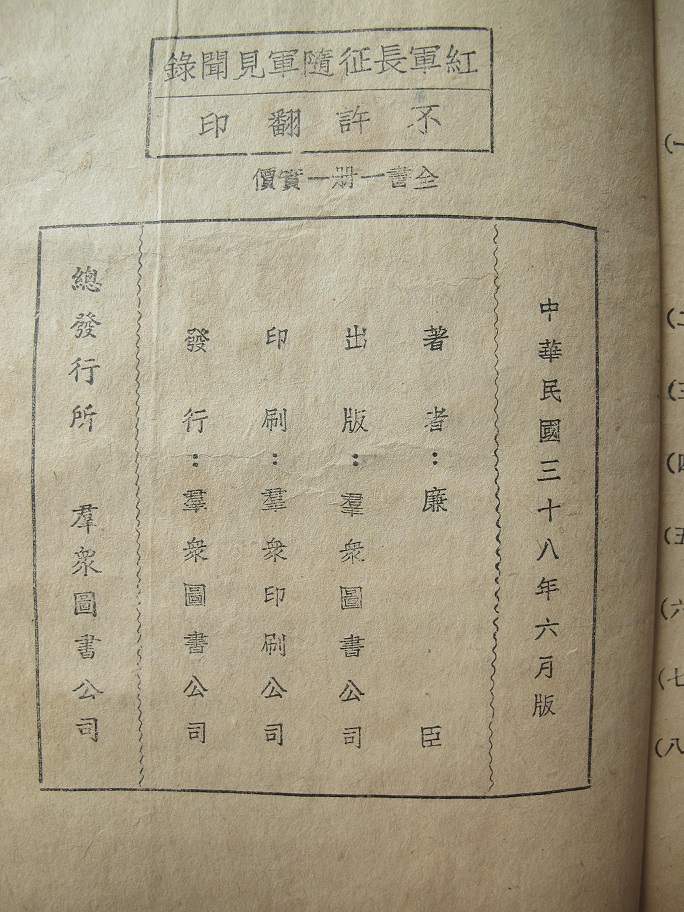 紅軍長征隨軍見聞錄
不許翻印
全書一冊一實價
中華民國三十八年六月版
著者：廉臣
出版：羣衆圖書公司
印刷：羣衆印刷公司
發行：羣衆圖書公司
總發行所 羣衆圖書公司
(一
(二
(三
(四
(五
(六
(七
(八